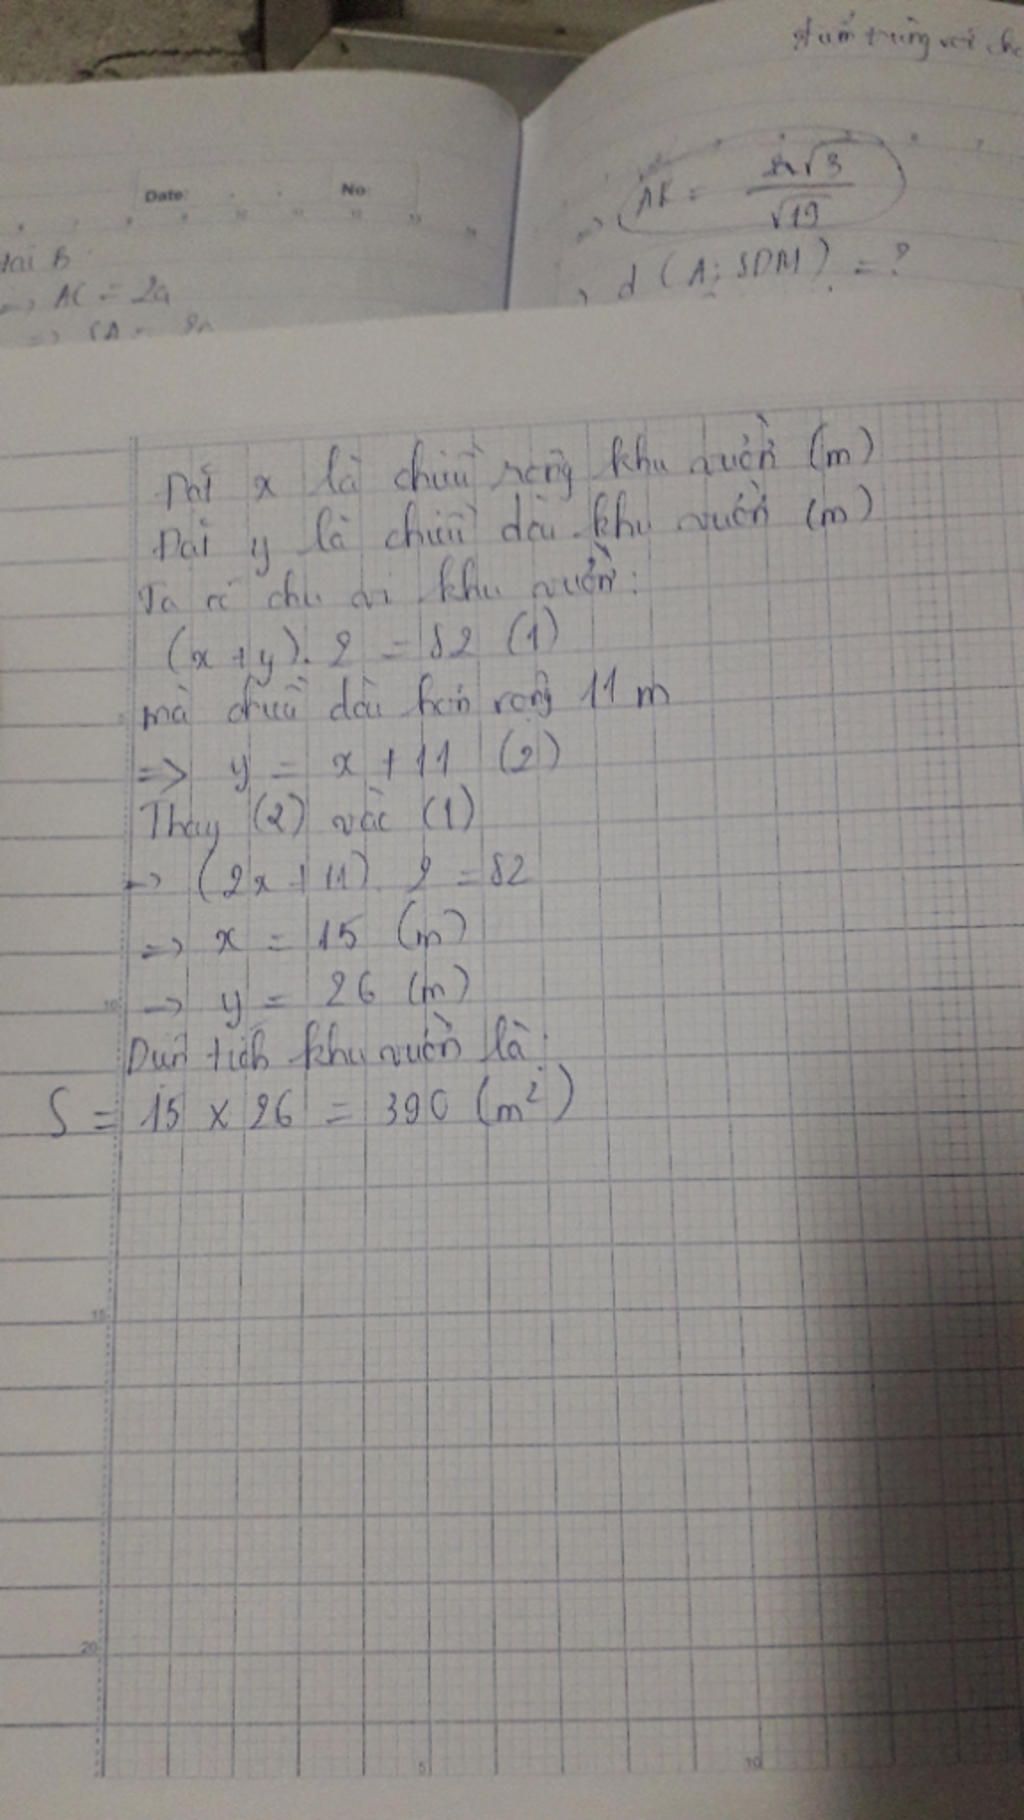 điểm trùng với
Date: No:
tại B
=> AC = 2a
=> SA =
=> AK = a√3 / √19
=> d (A; SDM) = ?
Đặt x là chiều rộng khu vườn (m)
Đặt y là chiều dài khu vườn (m)
Ta có chu vi khu vườn:
(x + y). 2 = 82 (1)
mà chiều dài hơn rộng 11 m
=> y = x + 11 (2)
Thay (2) vào (1)
=> (2x + 11). 2 = 82
=> x = 15 (m)
=> y = 26 (m)
Diện tích khu vườn là:
S = 15 x 26 = 390 (m²)
10
15
20
5
10